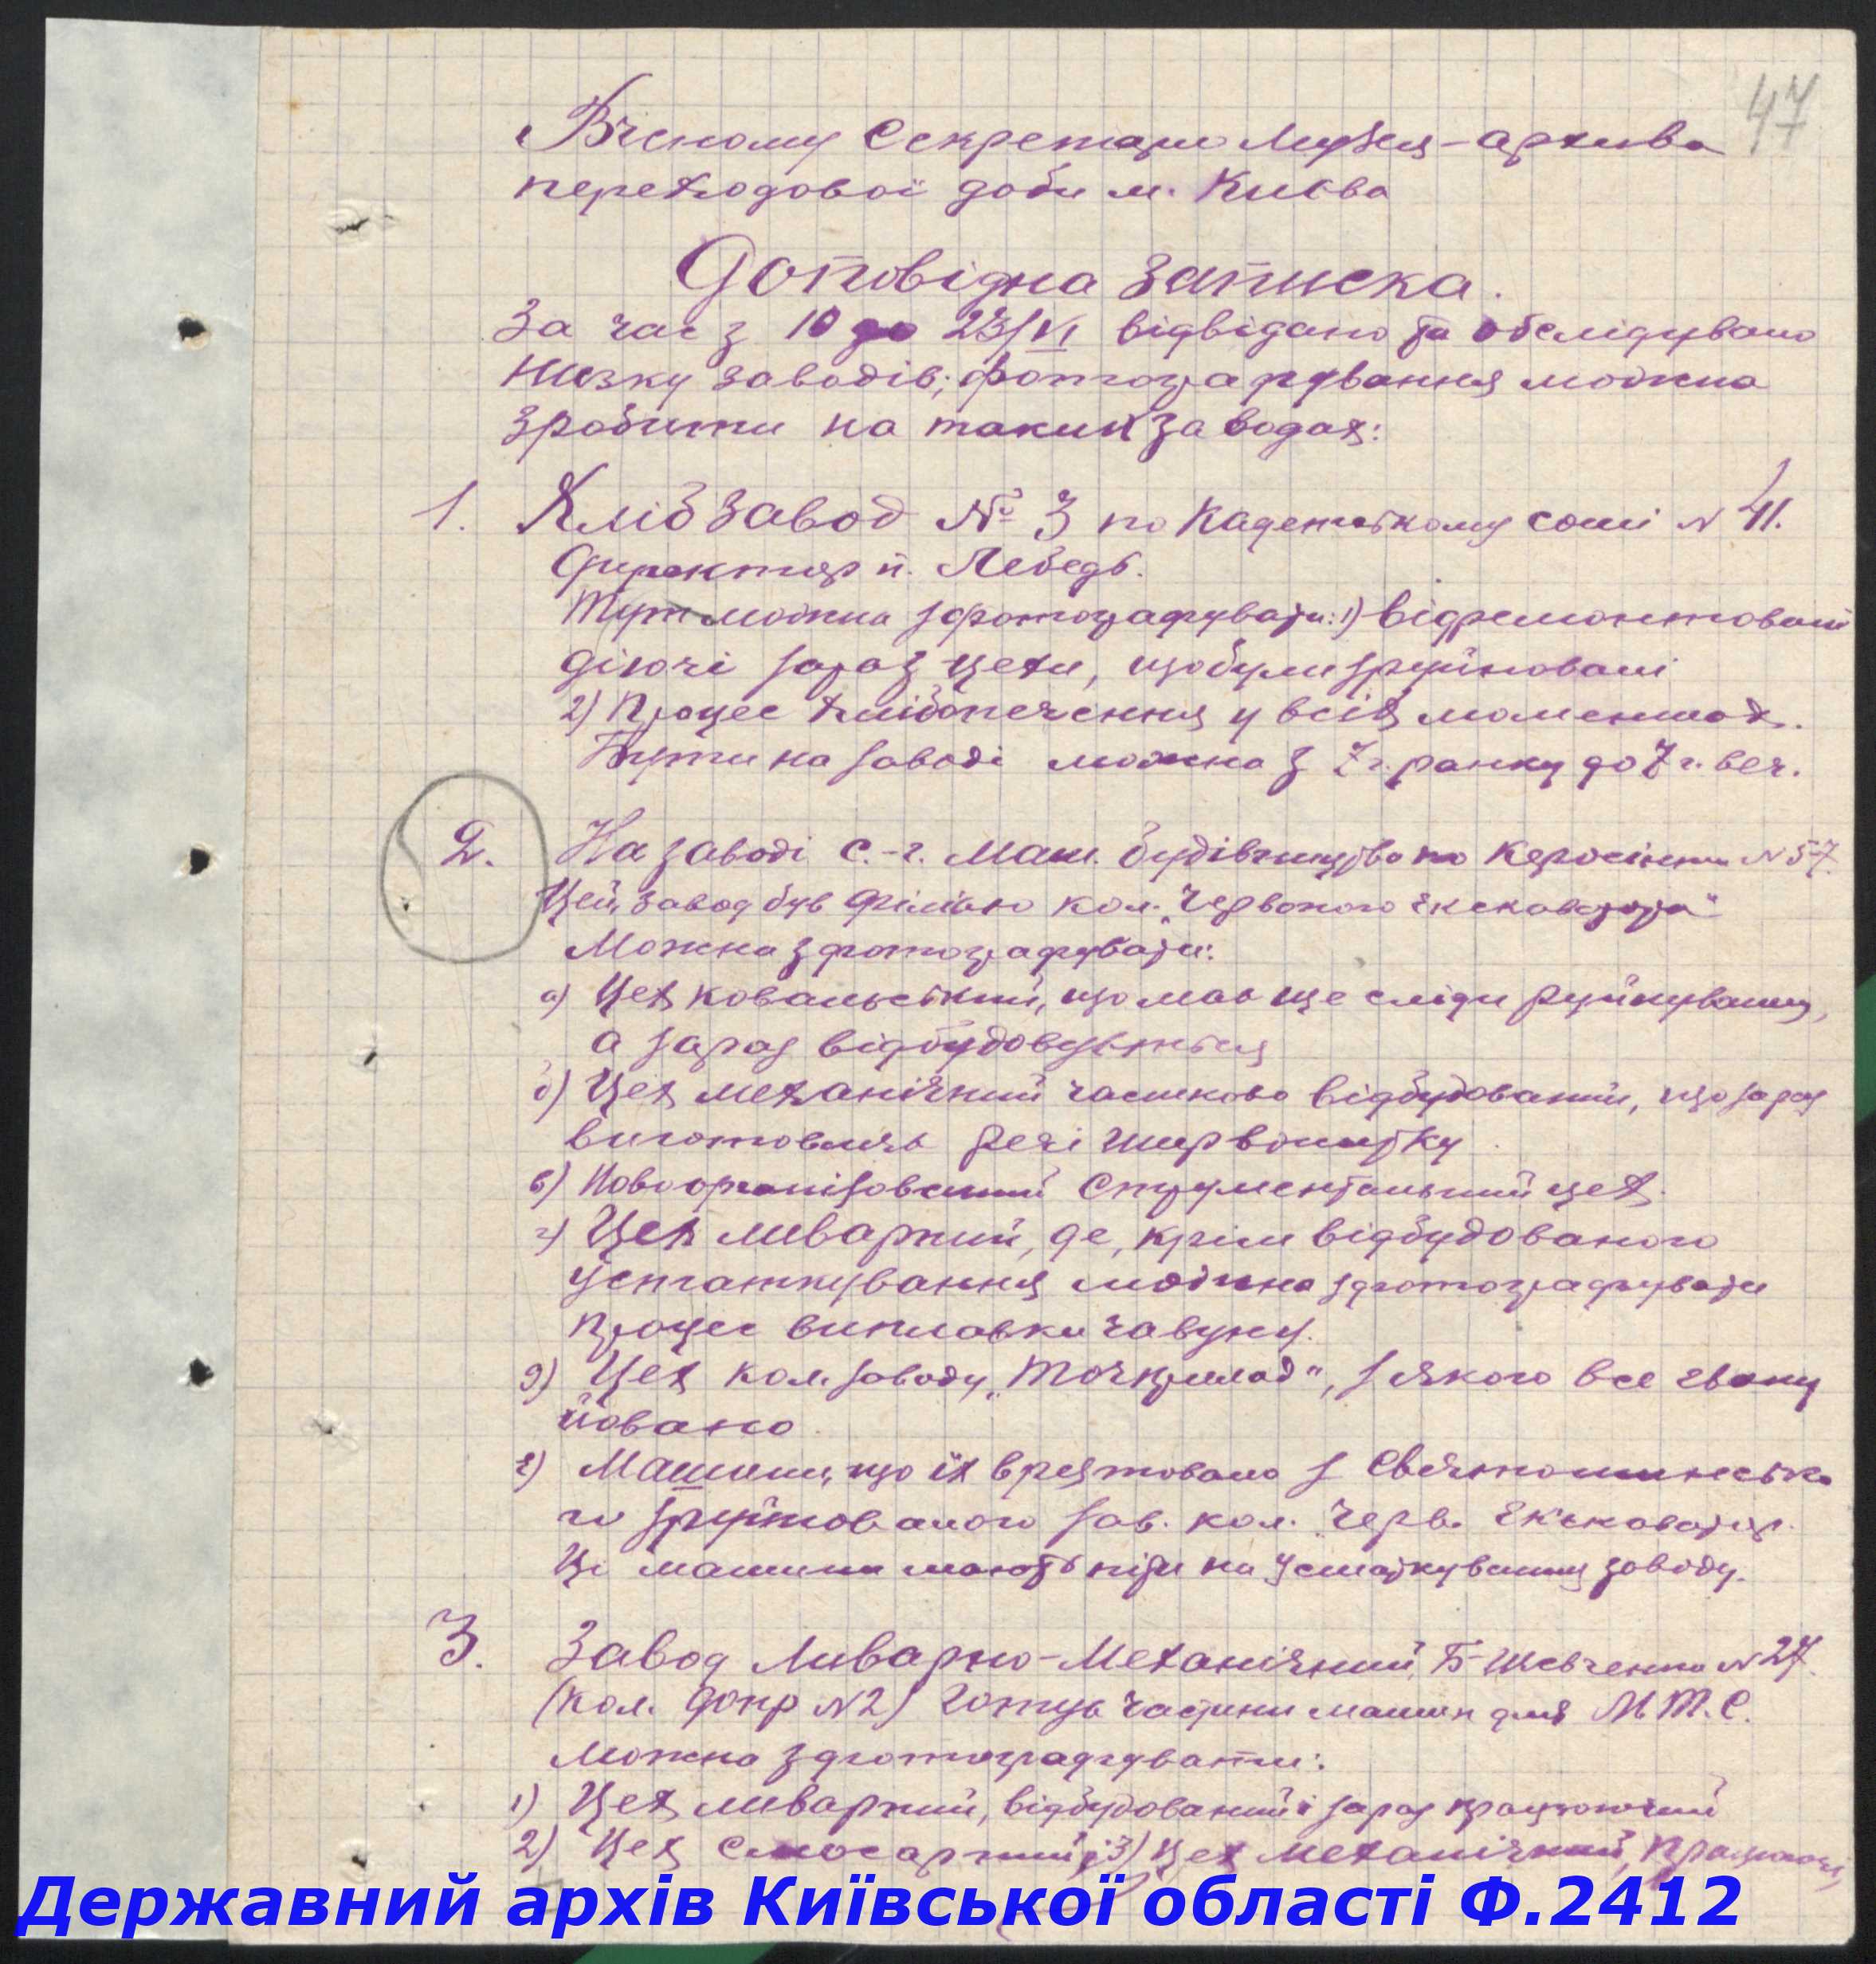 47
Вченому Секретарю Музея-архива
переходової доби м. Києва
Доповідна записка.
За час з 10 до 23/VI відвідано та обслідувано
низку заводів; фотографування можна
зробити на таких заводах:
1. Хлібзавод № 3 по Кадетському сошi N 41.
Директор п. Лебедь.
Тут можна зфотографувати: 1) відремонтовані
діючі зараз цехи, що були зруйновані
2) Процес хлібопечення у всіх моментах.
Бути на заводі можна з 7 г. ранку до 7 г. веч.
2. На заводі с.-г. маш. будівництва по Керосінни N 57.
Цей завод був філією кол. „Червоного екскаватора"
Можна зфотографувати:
а) Цех ковальський, що має ще сліди руйнування,
а зараз відбудовується
б) Цех механічний частково відбудований, що зараз
виготовляє речі ширвжитку
в) Новоорганізований струментальний цех.
г) Цех ливарний, де, крім відбудованого
устаткування можна зфотографувати
процес виплавки чавуну.
д) Цех кол. заводу „Точприлад", з якого все еваку
йовано
е) Машини, що їх врятовано з Святошинсько
го зруйнованого зав. кол. Черв. Екскаватор.
Ці машини мають піти на устаткування заводу.
3. Завод Ливарно-Механічний, Б-Шевченка N 27.
(кол. Допр N2) Готує частини машин для М.Т.С.
Можна зфотографувати:
1) Цех ливарний, відбудований і зараз працюючий
2) Цех слюсарний; 3) Цех механічний,
Державний архів Київської області Ф.2412